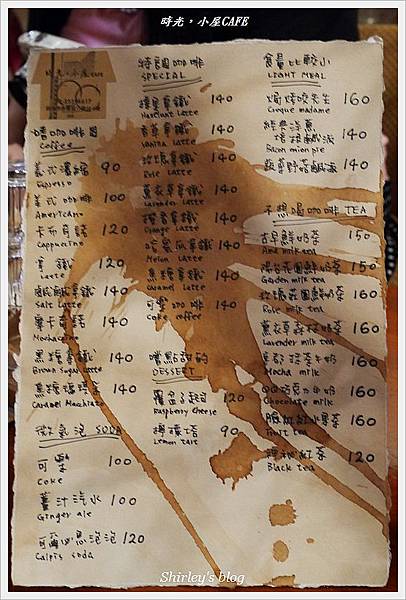 時光，小屋CAFE
時光，小屋CAFE
喝咖啡
Coffee
義式濃縮 90
Espresso
美式咖啡 100
Americano
卡布奇諾 120
Cappuccino
拿鐵 120
Latte
鹹鹹拿鐵 140
Salt Latte
摩卡奇諾 140
Mochaccino
黑糖拿鐵 140
Brown Sugar Latte
黑糖瑪琪朵 140
Caramel Macchiato
微氣泡 SODA
可樂 100
Coke
薑汁汽水 100
Ginger ale
可爾必思泡泡 120
Calpis soda
特調咖啡
SPECIAL
榛果拿鐵 140
Hazelnut Latte
香草拿鐵 140
Vanilla Latte
玫瑰拿鐵 140
Rose Latte
薰衣草拿鐵 140
Lavender Latte
橙香拿鐵 140
Orange Latte
哈蜜瓜拿鐵 140
Melon Latte
焦糖拿鐵 140
Caramel Latte
可樂咖啡 140
Coke coffee
嚐點甜的
DESSERT
覆盆子起司 120
Raspberry Cheese
檸檬塔 90
Lemon tart
食量比較小
LIGHT MEAL
焗烤咬先生 160
Croque madame
經典洋蔥
培根鹹派 140
Bacon onion pie
蔬菜野菇鹹派 140
不想喝咖啡 TEA
古早鮮奶茶 150
And milk tea
陽台花園鮮奶茶 150
Garden milk tea
玫瑰花園鮮奶茶 160
Rose milk tea
薰衣草森林奶茶 160
Lavender milk tea
160
Mocha milk
巧克力牛奶 160
Chocolate milk
臉紅紅水果茶 160
Fruit tea
紅茶 120
Black tea
Shirley's blog